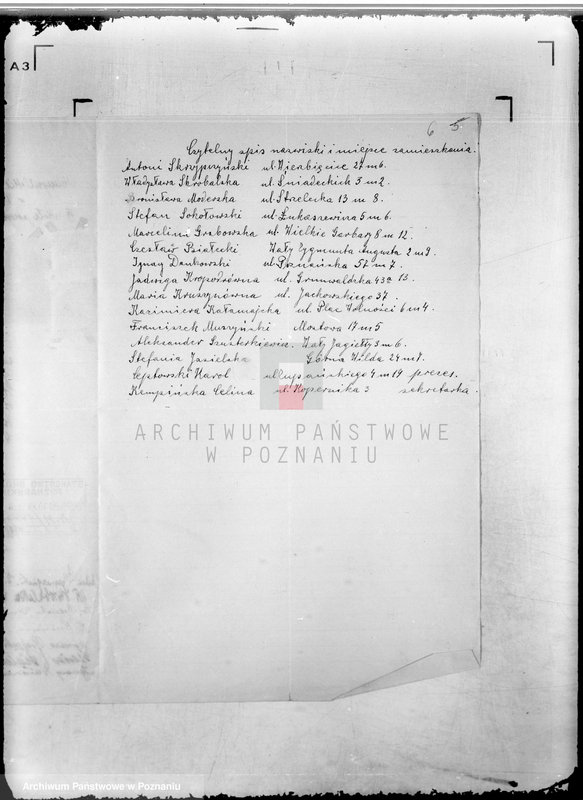 A3
6 5.
Czytelny spis nazwiski i miejsce zamieszkania.
Antoni Skrzypczyński ul. Wierzbięcice 27 m 6.
Władysława Skrobalska ul. Śniadeckich 3 m 2.
Bronisława Moderska ul. Strzelecka 13 m 8.
Stefan Sokołowski ul. Łukaszewicza 5 m 6.
Marcelina Grabowska ul. Wielkie Garbary 8 m 12.
Czesław Działecki Wały Zygmunta Augusta 2 m 9.
Ignacy Dankowski ul. Poznańska 57 m 7.
Jadwiga ul. Grunwaldzka 43a 13.
Maria ul. Jackowskiego 37.
Kazimiera Kałamajska ul. Plac Wolności 6 m 4.
Franciszek Muszyński Mostowa 17 m 5
Aleksander Wały Jagiełły 3 m 6.
Stefania Jasielska Górna Wilda 24 m 1.
Karol 4 m 19 prezes.
Kempińska Celina ul. Kopernika 3 sekretarka.
ARCHIWUM PAŃSTWOWE
W POZNANIU
Archiwum Państwowe w Poznaniu